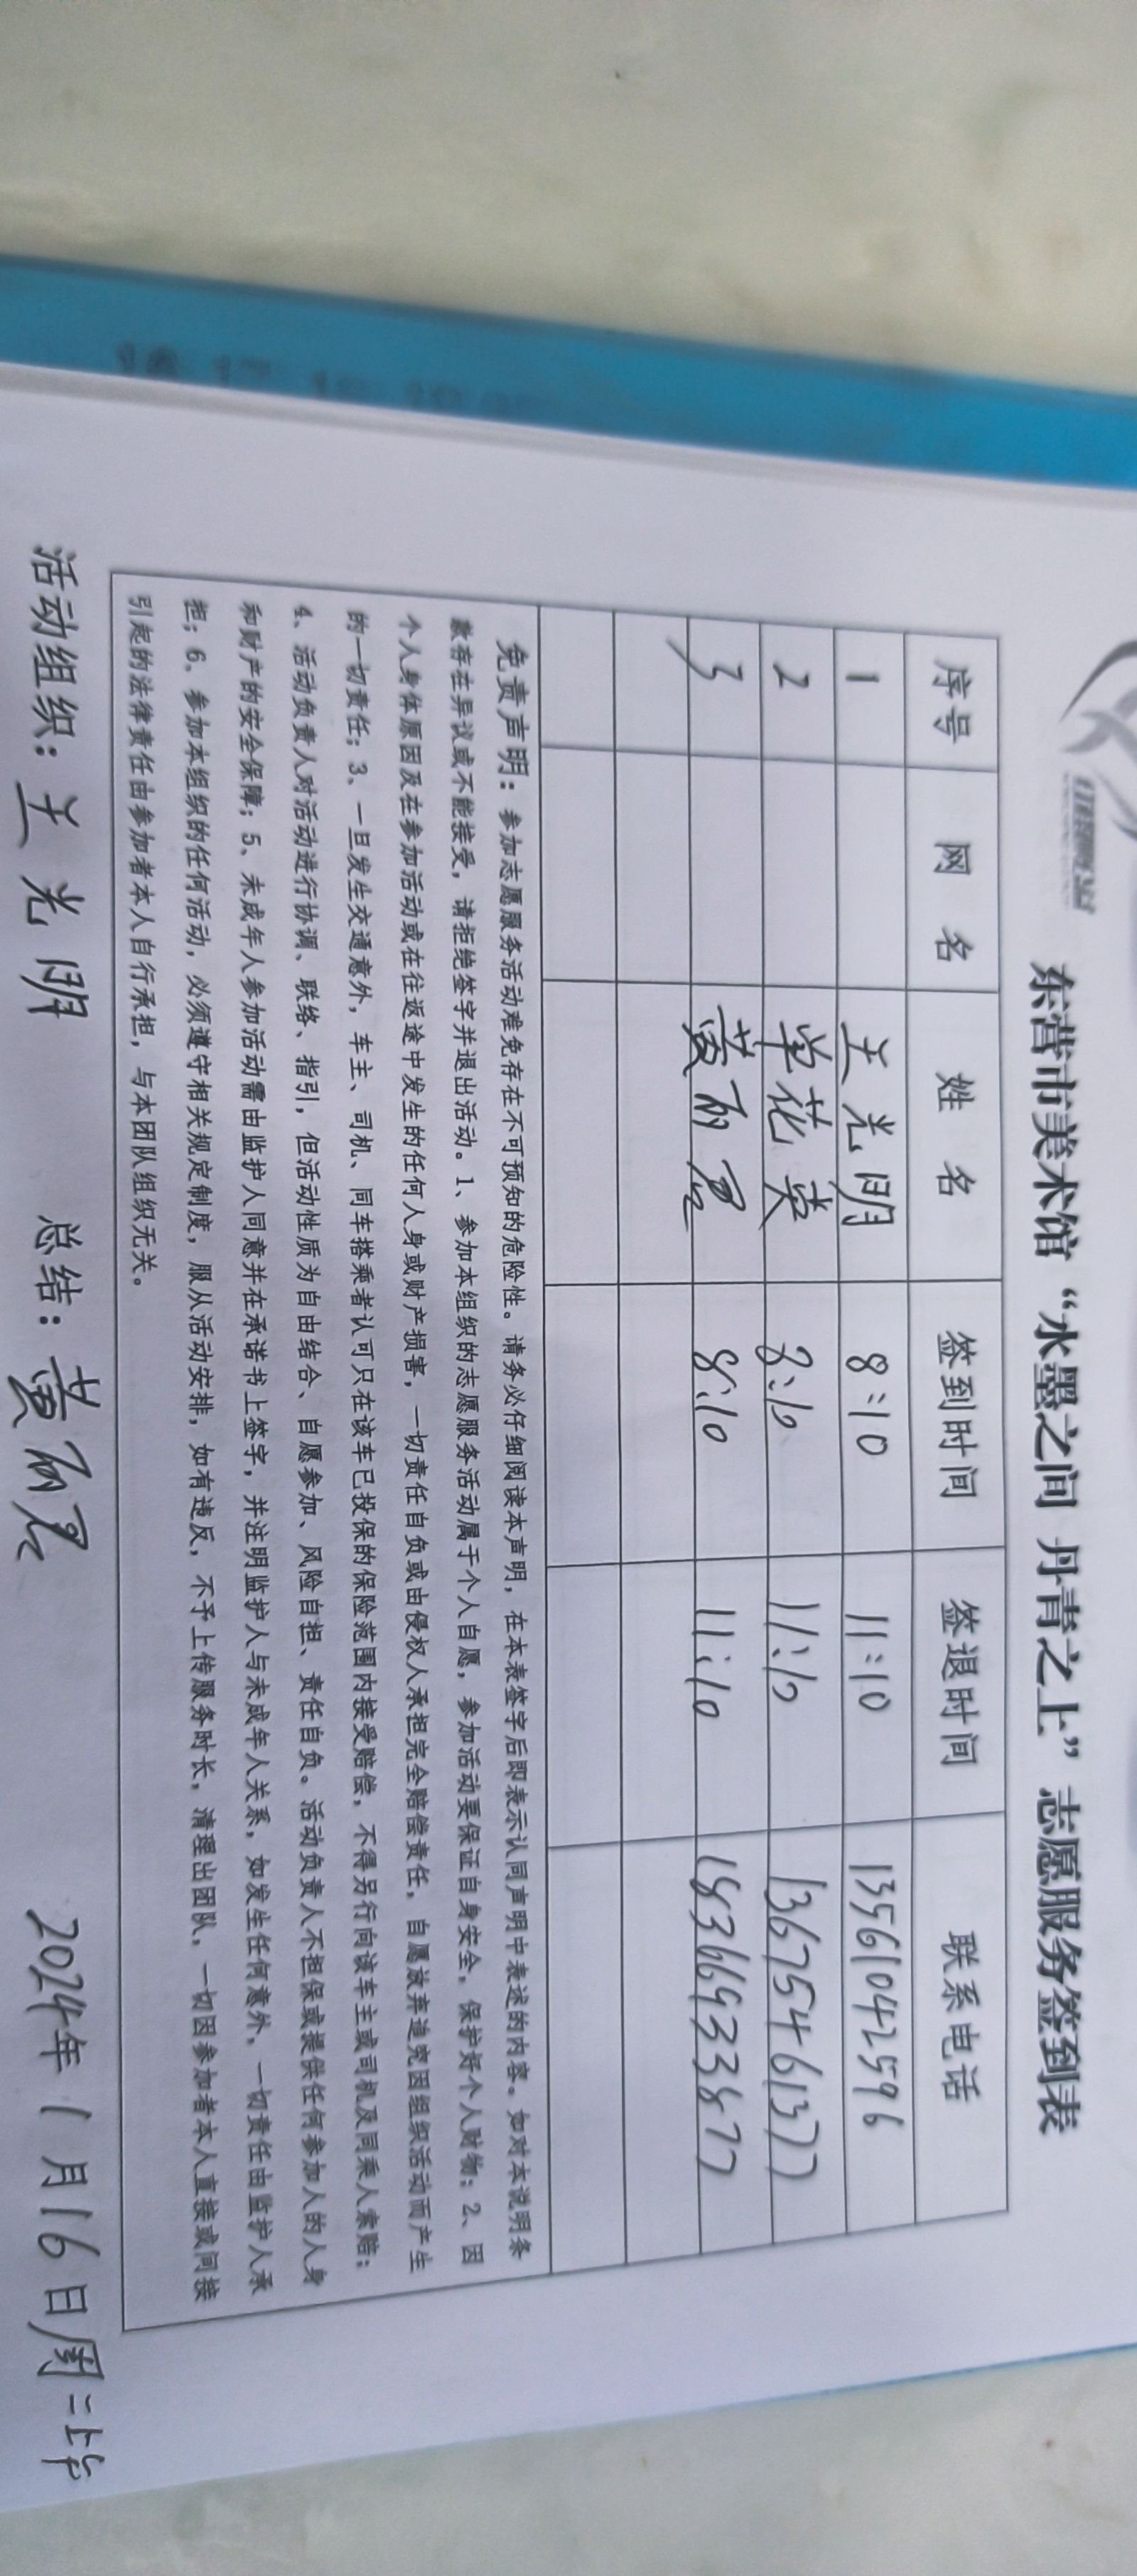 东营市美术馆“水墨之间 丹青之上”志愿服务签到表
序号 网 名 姓 名 签到时间 签退时间 联系电话
1 王光明 8:10 11:10 13561042596
2 单花英 8:10 11:10 13675461377
3 黄丽君 8:10 11:10 18366933877
免责声明：参加志愿服务活动难免存在不可预知的危险性。请务必仔细阅读本声明，在本表签字后即表示认同声明中表述的内容。如对本说明条
款存在异议或不能接受，请拒绝签字并退出活动。1、参加本组织的志愿服务活动属于个人自愿，参加活动要保证自身安全，保护好个人财物；2、因
个人身体原因及在参加活动或在往返途中发生的任何人身或财产损害，一切责任自负或由侵权人承担完全赔偿责任，自愿放弃追究因组织活动而产生
的一切责任；3、一旦发生交通意外，车主、司机、同车搭乘者认可只在该车已投保的保险范围内接受赔偿，不得另行向该车主或司机及同乘人索赔；
4、活动负责人对活动进行协调、联络、指引，但活动性质为自由结合、自愿参加、风险自担、责任自负。活动负责人不担保或提供任何参加人的人身
和财产的安全保障；5、未成年人参加活动需由监护人同意并在承诺书上签字，并注明监护人与未成年人关系，如发生任何意外，一切责任由监护人承
担；6、参加本组织的任何活动，必须遵守相关规定制度，服从活动安排，如有违反，不予上传服务时长，清理出团队，一切因参加者本人直接或间接
引起的法律责任由参加者本人自行承担，与本团队组织无关。
活动组织：王光明 总结：黄丽君 2024年1月16日周二上午